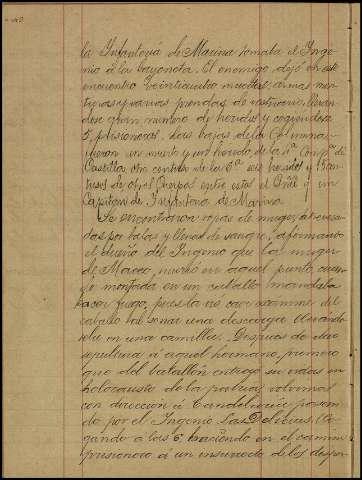 la Infantería de Marina tomaba el Inge-
nio á la bayoneta. El enemigo dejó en este
encuentro veinticuatro muertos, armas mon-
turas y varias prendas de vestuario, llevan-
dose gran numero de heridos y cogiendose
5 prisioneros. Las bajas de la Columna
fueron un muerto y un herido de la 1ª Compª de
Castilla, otro contuso de la 6ª seis heridos y 15 con-
tusos de otros Cuerpos entre estos el Gral y un
Capitan de Infantería de Marina
Se encontraron ropas de muger atravesa-
das por balas y llenas de sangre, afirmando
el dueño del Ingenio que la muger
de Maceo, murió en aquel punto, cuan-
do montada en un caballo mandaba
hacer fuego, pues la vió caer exanime del
caballo tal sonar una descarga llevando
sela en una camilla. Despues de dar
sepultura á aquel hermano, primero
que del batallón entregó su vida en
holocausto de la patria, volvimos
con dirección á Candelaria pasan-
do por el Ingenio Las Delicias, lle-
gando á las 6, haciendo en el camino
prisionero á un insurrecto de los disper-